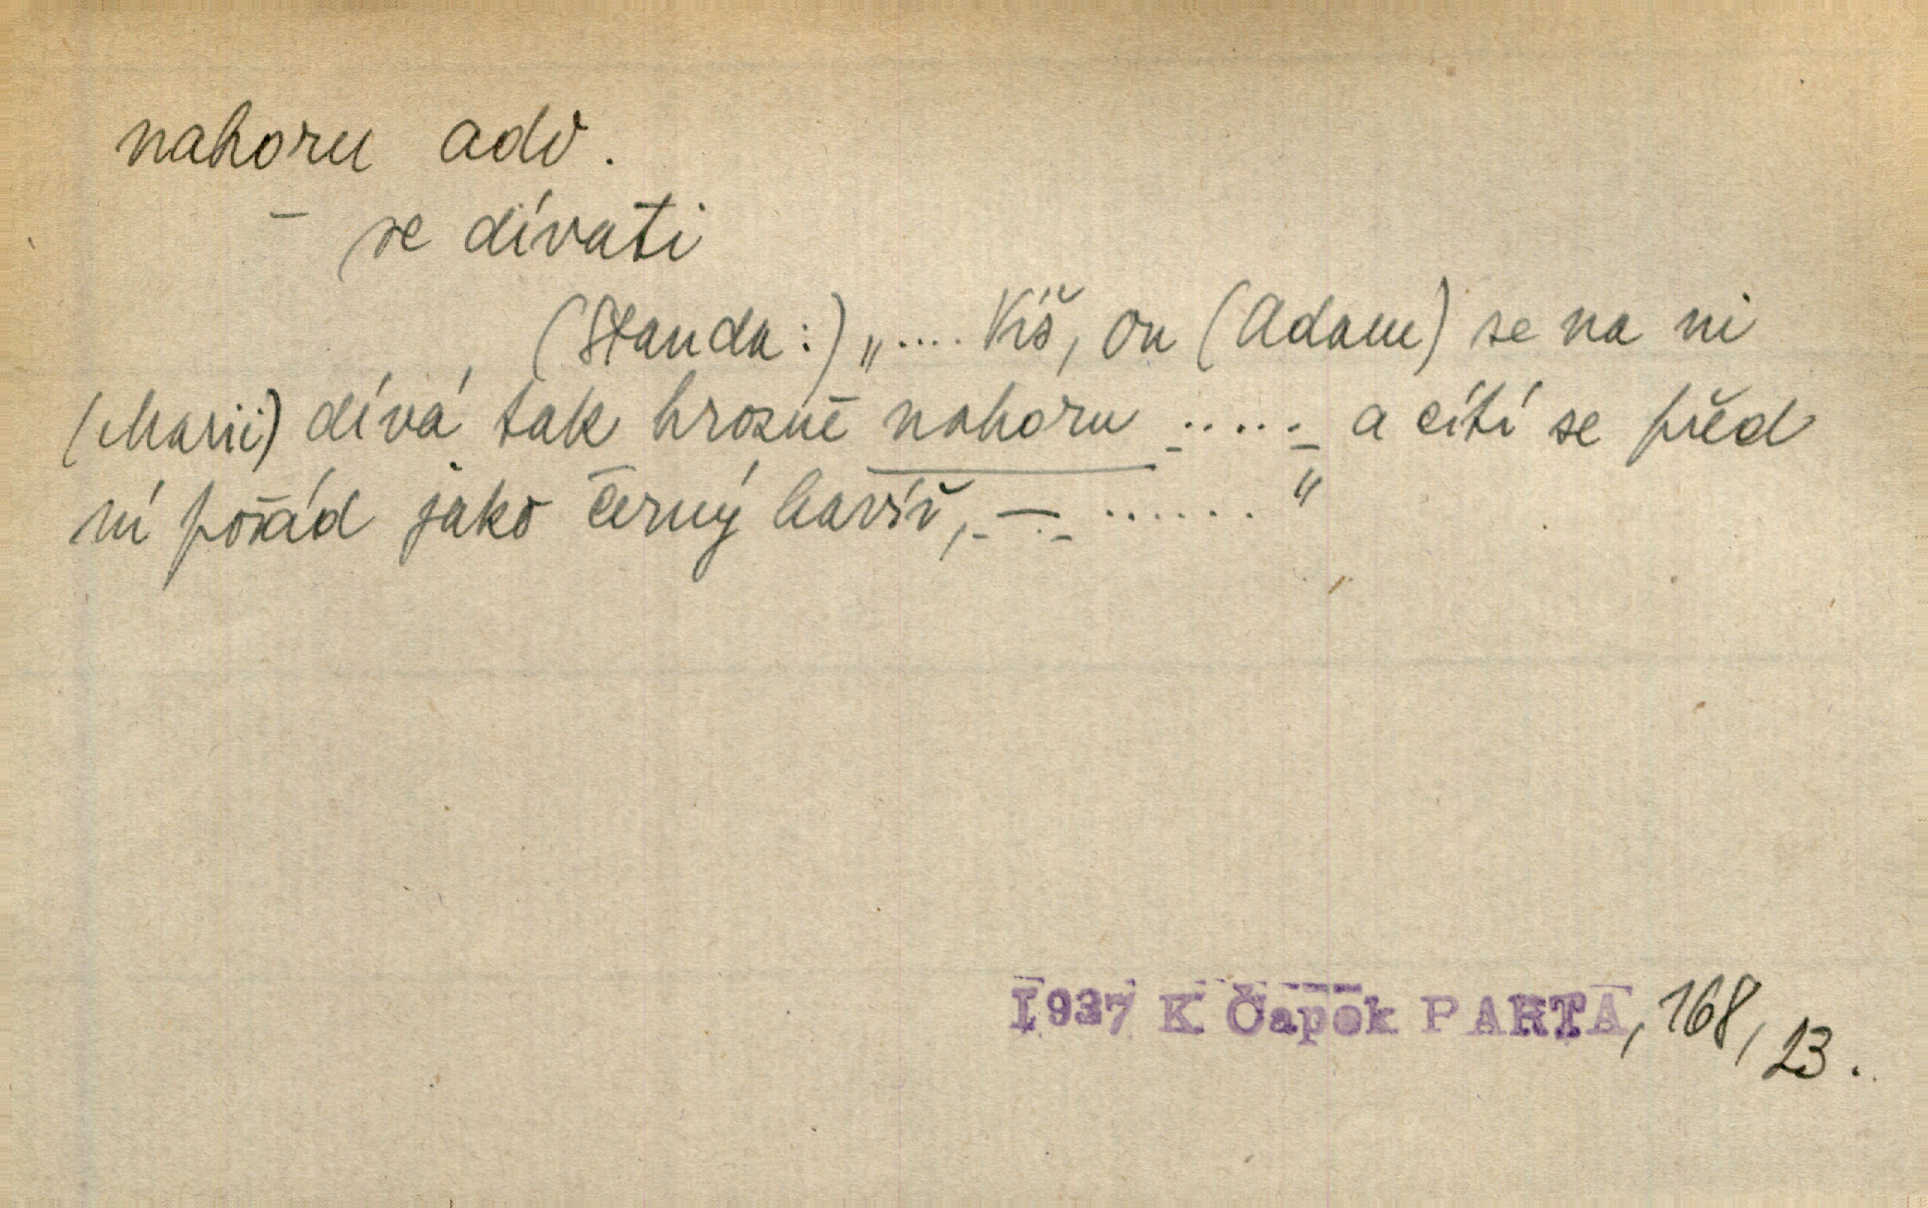 nahoru adv.
– se dívati
(Standa:) „.... Víš, on (Adam) se na ni
(Marii) dívá tak hrozně nahoru ..... a cítí se před
ní pořád jako černý havíř, — ......"
1937 K Čapek PARTA, 168, 23.